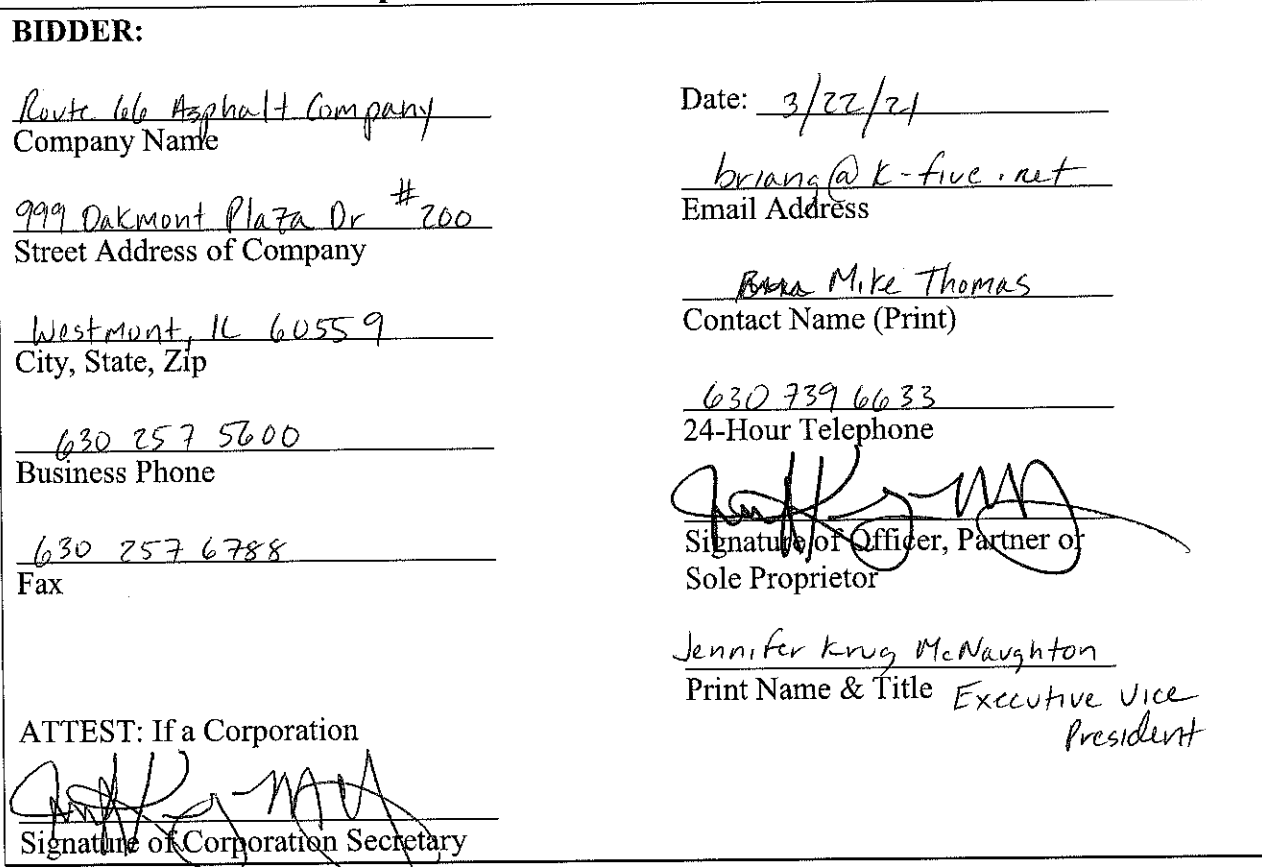 BIDDER:
Route 66 Asphalt Company
Company Name
999 Oakmont Plaza Dr #200
Street Address of Company
Westmont, IL 60559
City, State, Zip
630 257 5600
Business Phone
630 257 6788
Fax
ATTEST: If a Corporation
Signature of Corporation Secretary
Date: 3/22/21
briang@k-five.net
Email Address
Mike Thomas
Contact Name (Print)
630 739 6633
24-Hour Telephone
Signature of Officer, Partner or
Sole Proprietor
Jennifer Krug McNaughton
Print Name & Title Executive Vice
President